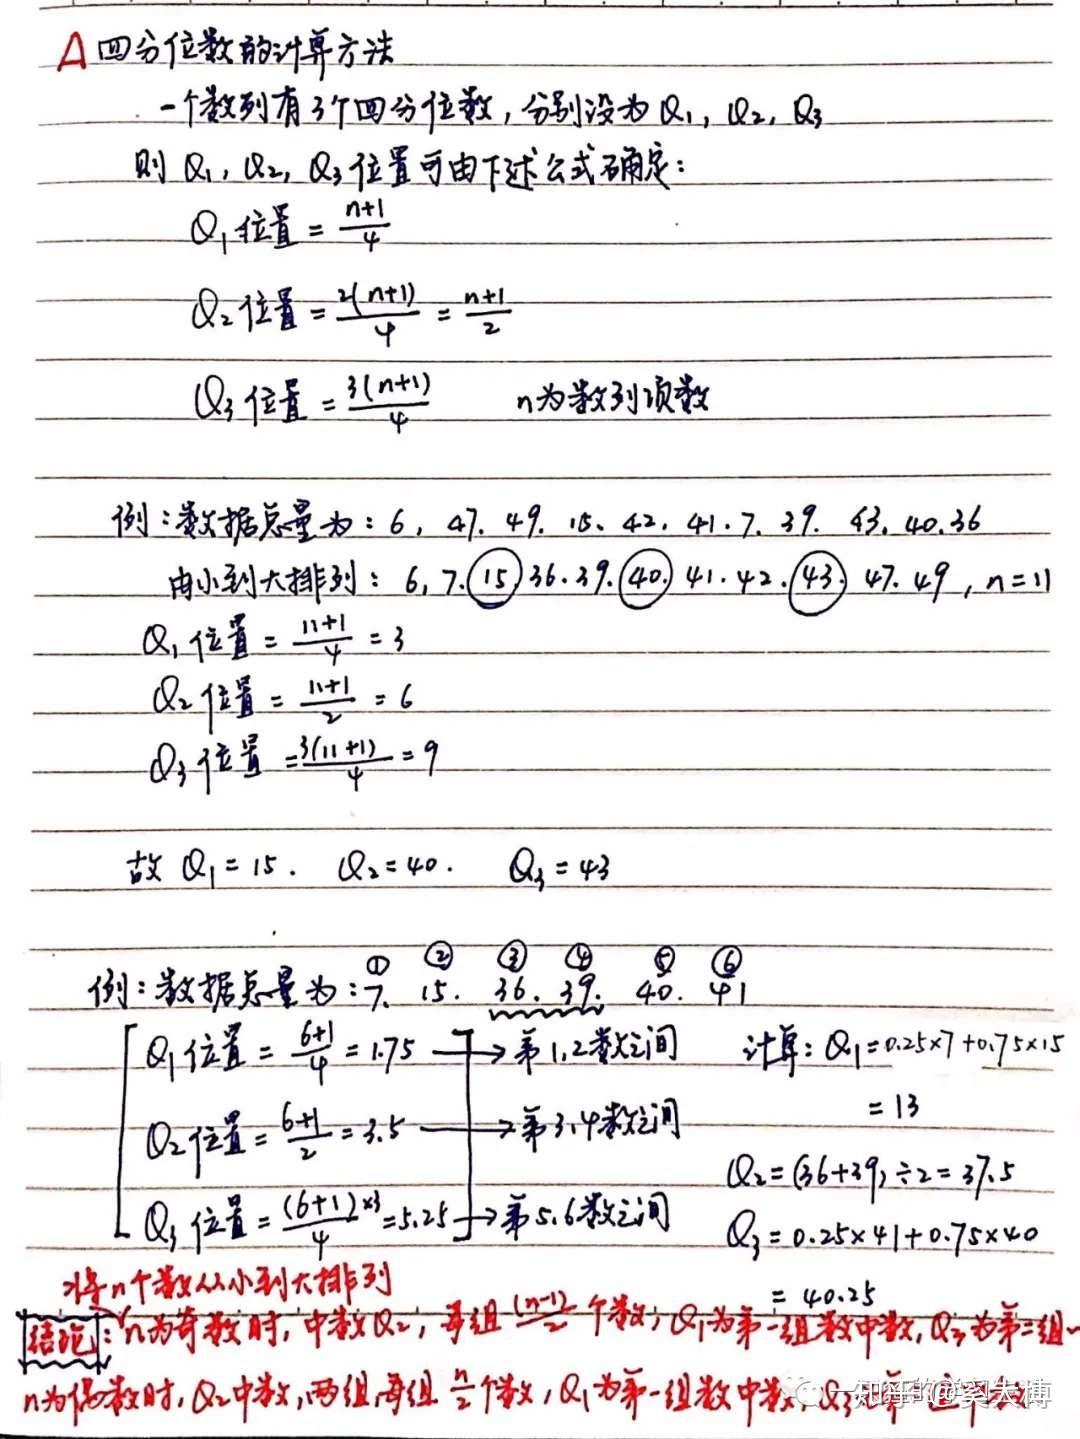 A 四分位数的计算方法
一个数列有3个四分位数,分别设为Q₁,Q₂,Q₃
则Q₁,Q₂,Q₃位置可由下述公式确定:
Q₁位置 = (n+1)/4
Q₂位置 = 2(n+1)/4 = (n+1)/2
Q₃位置 = 3(n+1)/4 n为数列项数
例:数据总量为:6,47.49.15、42.41.7.39.43.40.36
由小到大排列:6,7.15.36.39.40.41.42.43.47.49,n=11
Q₁位置 = (11+1)/4 = 3
Q₂位置 = (11+1)/2 = 6
Q₃位置 = 3(11+1)/4 = 9
故Q₁=15. Q₂=40. Q₃=43
① ② ③ ④ ⑤ ⑥
例:数据总量为:7. 15. 36. 39. 40. 41
Q₁位置 = (6+1)/4 = 1.75 → 第1.2数之间 计算:Q₁=0.25×7+0.75×15
= 13
Q₂位置 = (6+1)/2 = 3.5 → 第3.4数之间
Q₂=(36+39)÷2=37.5
Q₃位置 = (6+1)×3/4 = 5.25 → 第5.6数之间
Q₃=0.25×41+0.75×40
= 40.25
将n个数从小到大排列
结论:n为奇数时,中数Q₂,每组(n-1)/2个数,Q₁为第一组数中数,Q₃为第二组
n为偶数时,Q₂中数,两组,每组n/2个数,Q₁为第一组数中数,Q₃